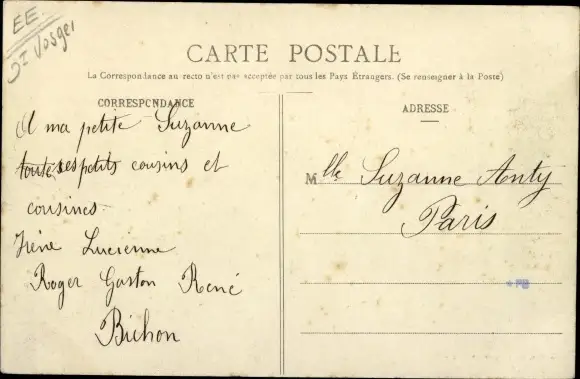 EE.
Vosges
CARTE POSTALE
La Correspondance au recto n'est pas acceptée par tous les Pays Étrangers. (Se renseigner à la Poste)
CORRESPONDANCE
A ma petite Suzanne
toutes ses petits cousins et
cousines
Irène Lucienne
Roger Gaston René
Bichon
ADRESSE
Mlle Suzanne Anty
Paris